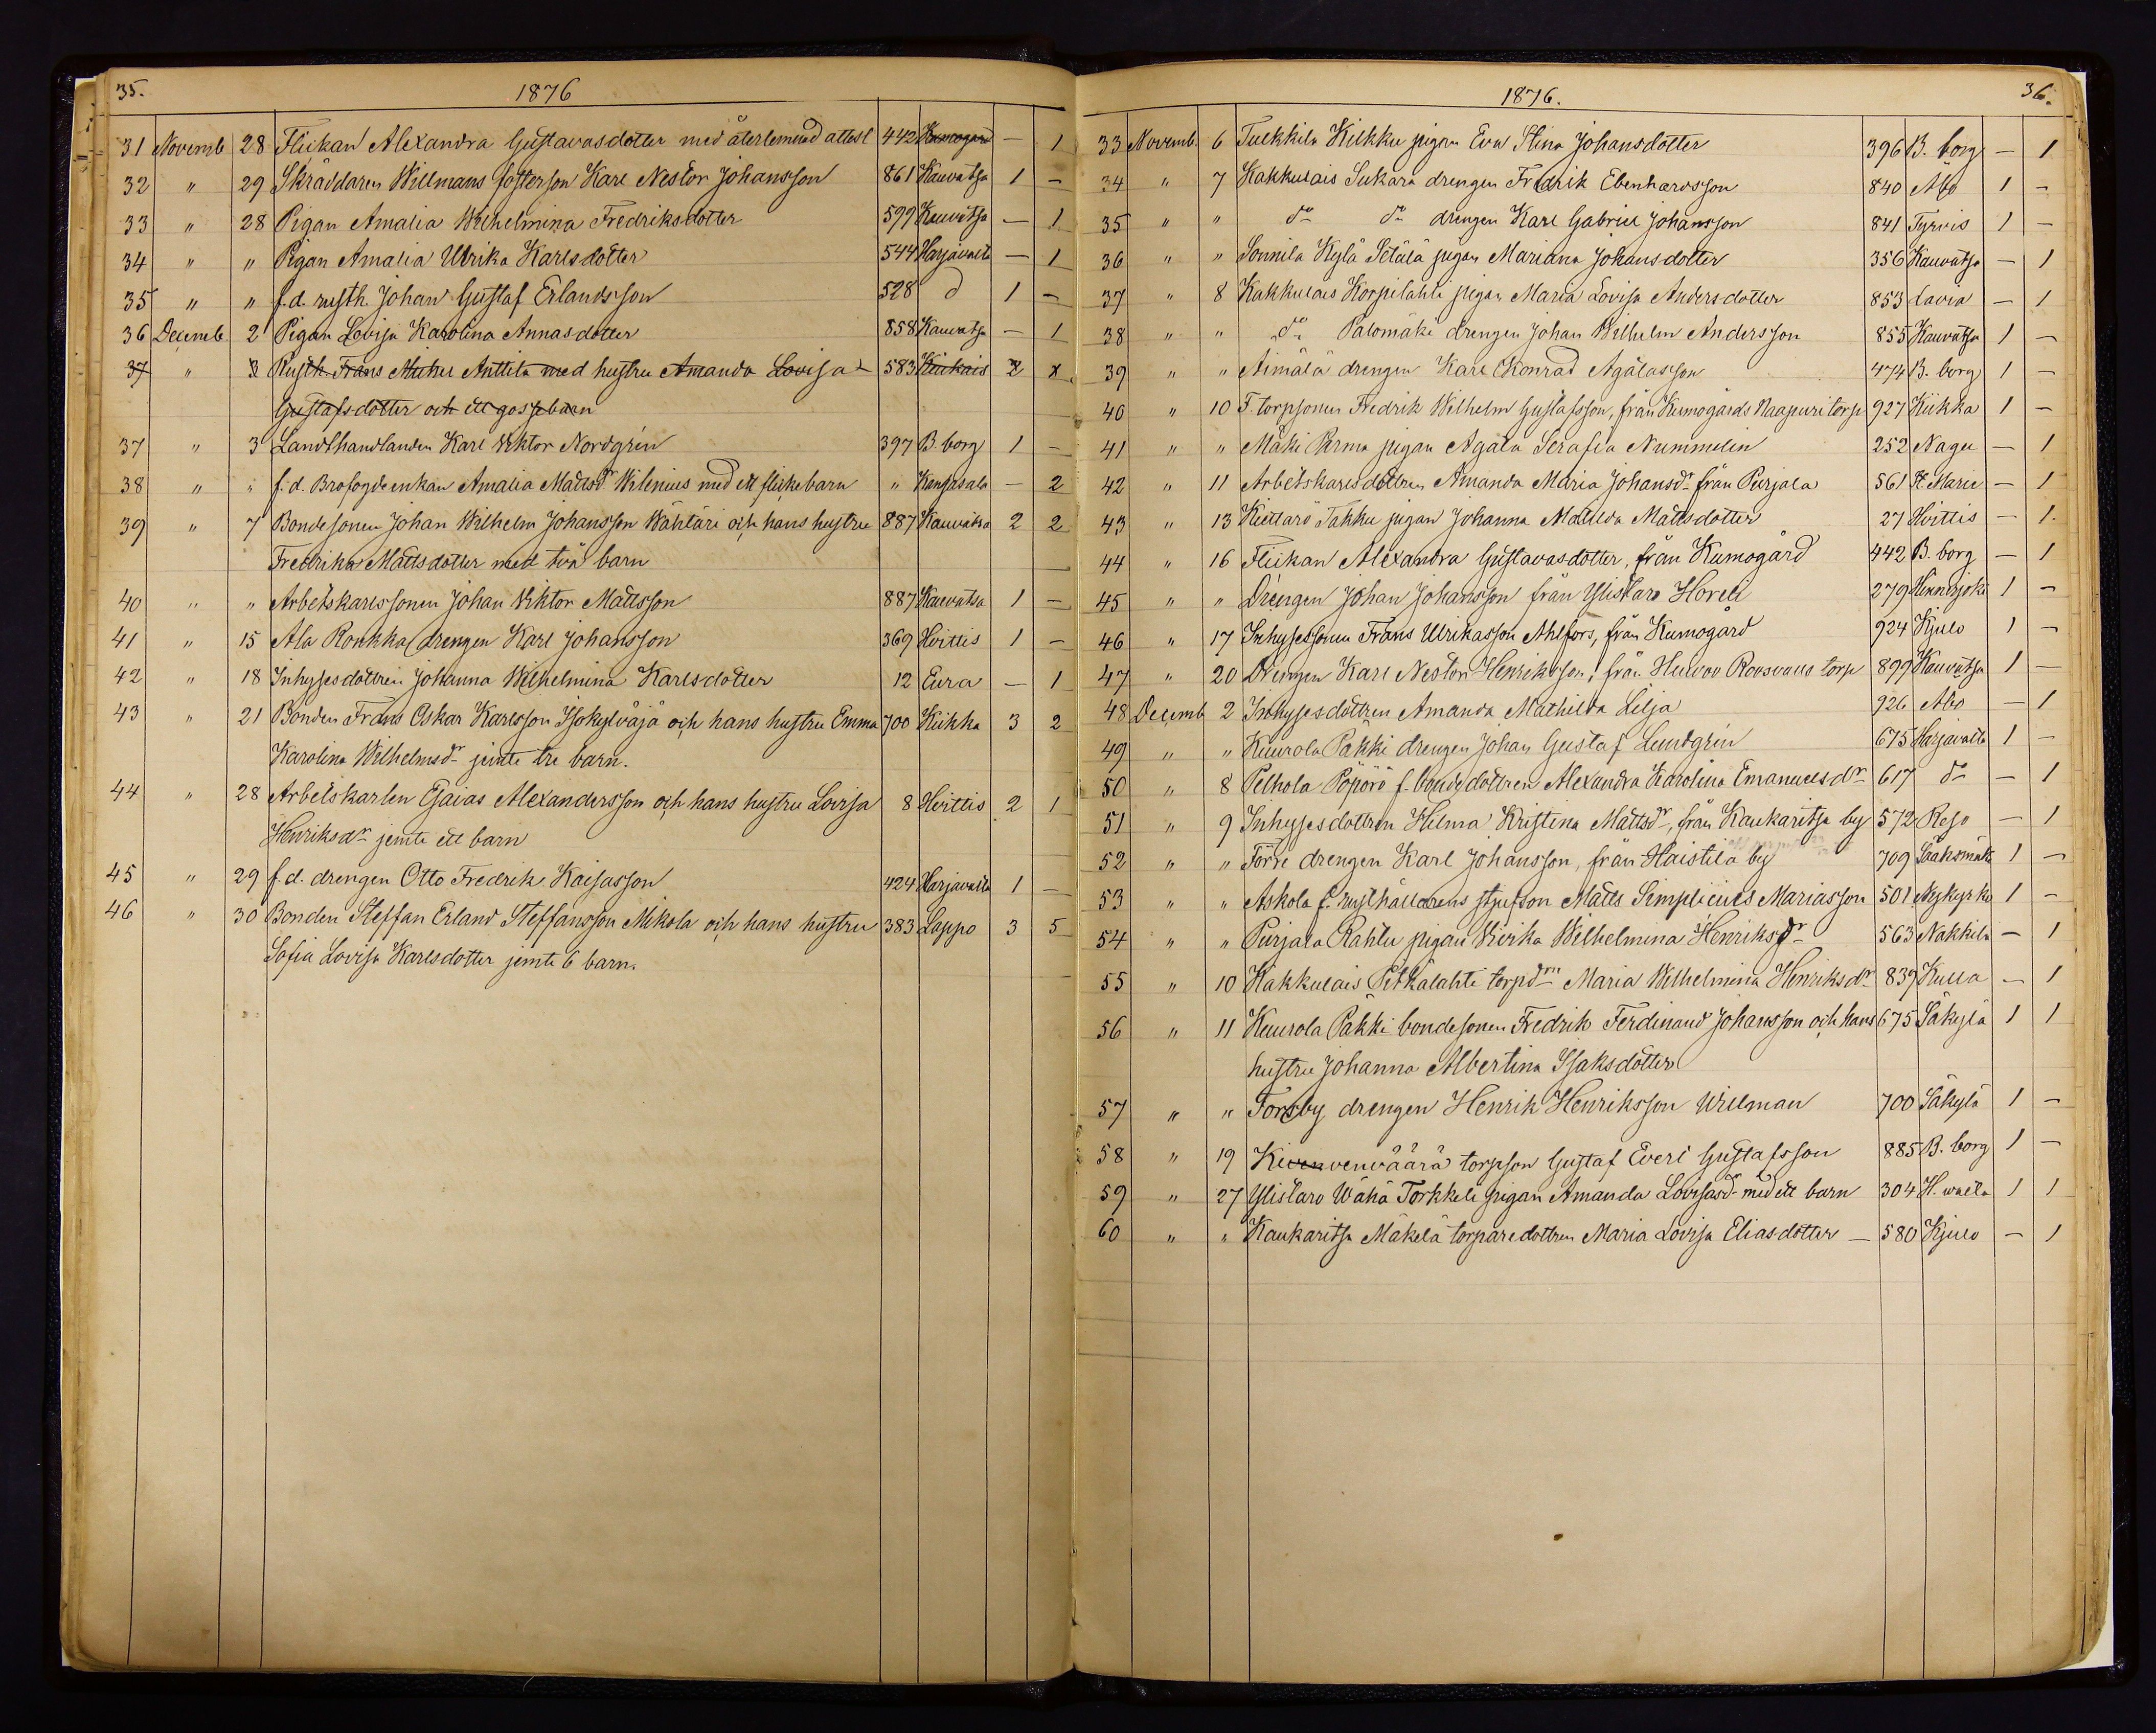 35.
1876
31 Novemb 28 Flickan Alexandra Gustavasdotter med återlemnad attest 442 Kumogård — 1
32 " 29 Skräddaren Willmans fosterson Karl Nestor Johansson 861 Kauvatsa 1 —
33 " 28 Pigan Amalia Wilhelmina Fredriksdotter 599 Kauvatsa — 1
34 " " Pigan Amalia Ulrika Karlsdotter 544 Harjavalta — 1
35 " " f.d. rusth. Johan Gustaf Erlandsson 528 d 1 —
36 Decemb. 2 Pigan Lovisa Karolina Annasdotter 858 Kauvatsa — 1
37 " 3 Rusth. Frans Mich: Anttila med hustru Amanda Lovisa 583 Kiukais 2 x
Gustafsdotter och ett gossebarn
37 " 3 Landthandlanden Karl Viktor Nordgrén 397 B. borg 1 —
38 " " f.d. Brofogdeenkan Amalia Mattsdr Wilenius med ett flickebarn " Kangasala — 2
39 " 7 Bondesonen Johan Wilhelm Johansson Wähtäri och hans hustru 887 Kauvatsa 2 2
Fredrika Mattsdotter med två barn
40 " " Arbetskarlssonen Johan Viktor Mattsson 887 Kauvatsa 1 —
41 " 15 Ala Ronkka drengen Karl Johansson 369 Hvittis 1 —
42 " 18 Inhysesdottren Johanna Wilhelmina Karlsdotter 12 Eura — 1
43 " 21 Bonden Frans Oskar Karlsson Isokylväjä och hans hustru Emma 700 Kiikka 3 2
Karolina Wilhelmsdr jemte tre barn.
44 " 28 Arbetskarlen Esaias Alexandersson och hans hustru Lovisa 8 Hvittis 2 1
Henriksdr jemte ett barn
45 " 29 f.d. drengen Otto Fredrik Kaisasson 424 Harjavalta 1 —
46 " 30 Bonden Steffan Erland Steffansson Mikola och hans hustru 383 Lappo 3 5
Sofia Lovisa Karlsdotter jemte 6 barn.
1876.
36.
33 Novemb. 6 Tulkkila Kilkku pigan Eva Stina Johansdotter 396 B. borg — 1
34 " 7 Kakkulais Sukara drengen Fredrik Ebenhardsson 840 Åbo 1 —
35 " " do do drengen Karl Gabriel Johansson 841 Tyrvis 1 —
36 " " Sonnila Kylä Setälä pigan Mariana Johansdotter 356 Kauvatsa — 1
37 " 8 Kakkulais Korpilahti pigan Maria Lovisa Andersdotter 853 Lavia — 1
38 " " do Palomäki drengen Johan Wilhelm Andersson 855 Kauvatsa 1 —
39 " " Aimälä drengen Karl Konrad Agälasson 474 B. borg 1 —
40 " 10 F. torpsonen Fredrik Wilhelm Gustafsson, från Kumogårds Naapuri torp 927 Kiikka 1 —
41 " " Mäki Perma pigan Agata Serafia Nummelin 252 Nagu — 1
42 " 11 Arbetskarlsdottren Amanda Maria Johansdr från Purjala 561 St. Marie — 1
43 " 13 Kiettarö Takku pigan Johanna Matilda Mattsdotter 27 Hvittis — 1.
44 " 16 Flickan Alexandra Gustavasdotter, från Kumogård 442 B. borg — 1
45 " " Drengen Johan Johansson från Ylistaro Horeli 279 Hinnerjoki 1 —
46 " 17 Inhysessonen Frans Ulrikasson Ahlfors, från Kumogård 924 Kjulo 1 —
47 " 20 Drengen Karl Nestor Henriksson, från Huivoo Roosvalls torp 899 Kauvatsa 1 —
48 Decemb 2 Inhysesdottren Amanda Mathilda Lilja 926 Åbo — 1
49 " " Kuurola Pakki drengen Johan Gustaf Lundgrén 675 Harjavalta 1 —
50 " 8 Pelhola Pöpörö f. bondedottren Alexandra Karolina Emanuelsdr 617 do — 1
51 " 9 Inhysesdottren Hilma Kristina Mattsdr, från Kaukaritsa by 572 Reso — 1
52 " " Förre drengen Karl Johansson, från Haistila by 709 Sääksmäki 1 —
53 " " Askola f. rusthållarens styfson Matts Simplicius Mariasson 501 Nykyrko 1 —
54 " " Purjala Rahtu pigan Vivika Wilhelmina Henriksdr 563 Nakkila — 1
55 " 10 Kakkulais Pitkälahti torpdrn Maria Wilhelmina Henriksdr 839 Kulla — 1
56 " 11 Kuurola Pakki bondesonen Fredrik Ferdinand Johansson och hans 675 Säkylä 1 1
hustru Johanna Albertina Isaksdotter
57 " " Forsby drengen Henrik Henriksson Willman 700 Säkylä 1 —
58 " 19 Kivenvenväärä torpson Gustaf Everi Gustafsson 885 B. borg 1 —
59 " 27 Ylistaro Wähä Torkkeli pigan Amanda Lovisasdr med ett barn 304 H. valta 1 1
60 " " Kaukaritsa Mäkelä torparedottren Maria Lovisa Eliasdotter — 580 Kjulo — 1